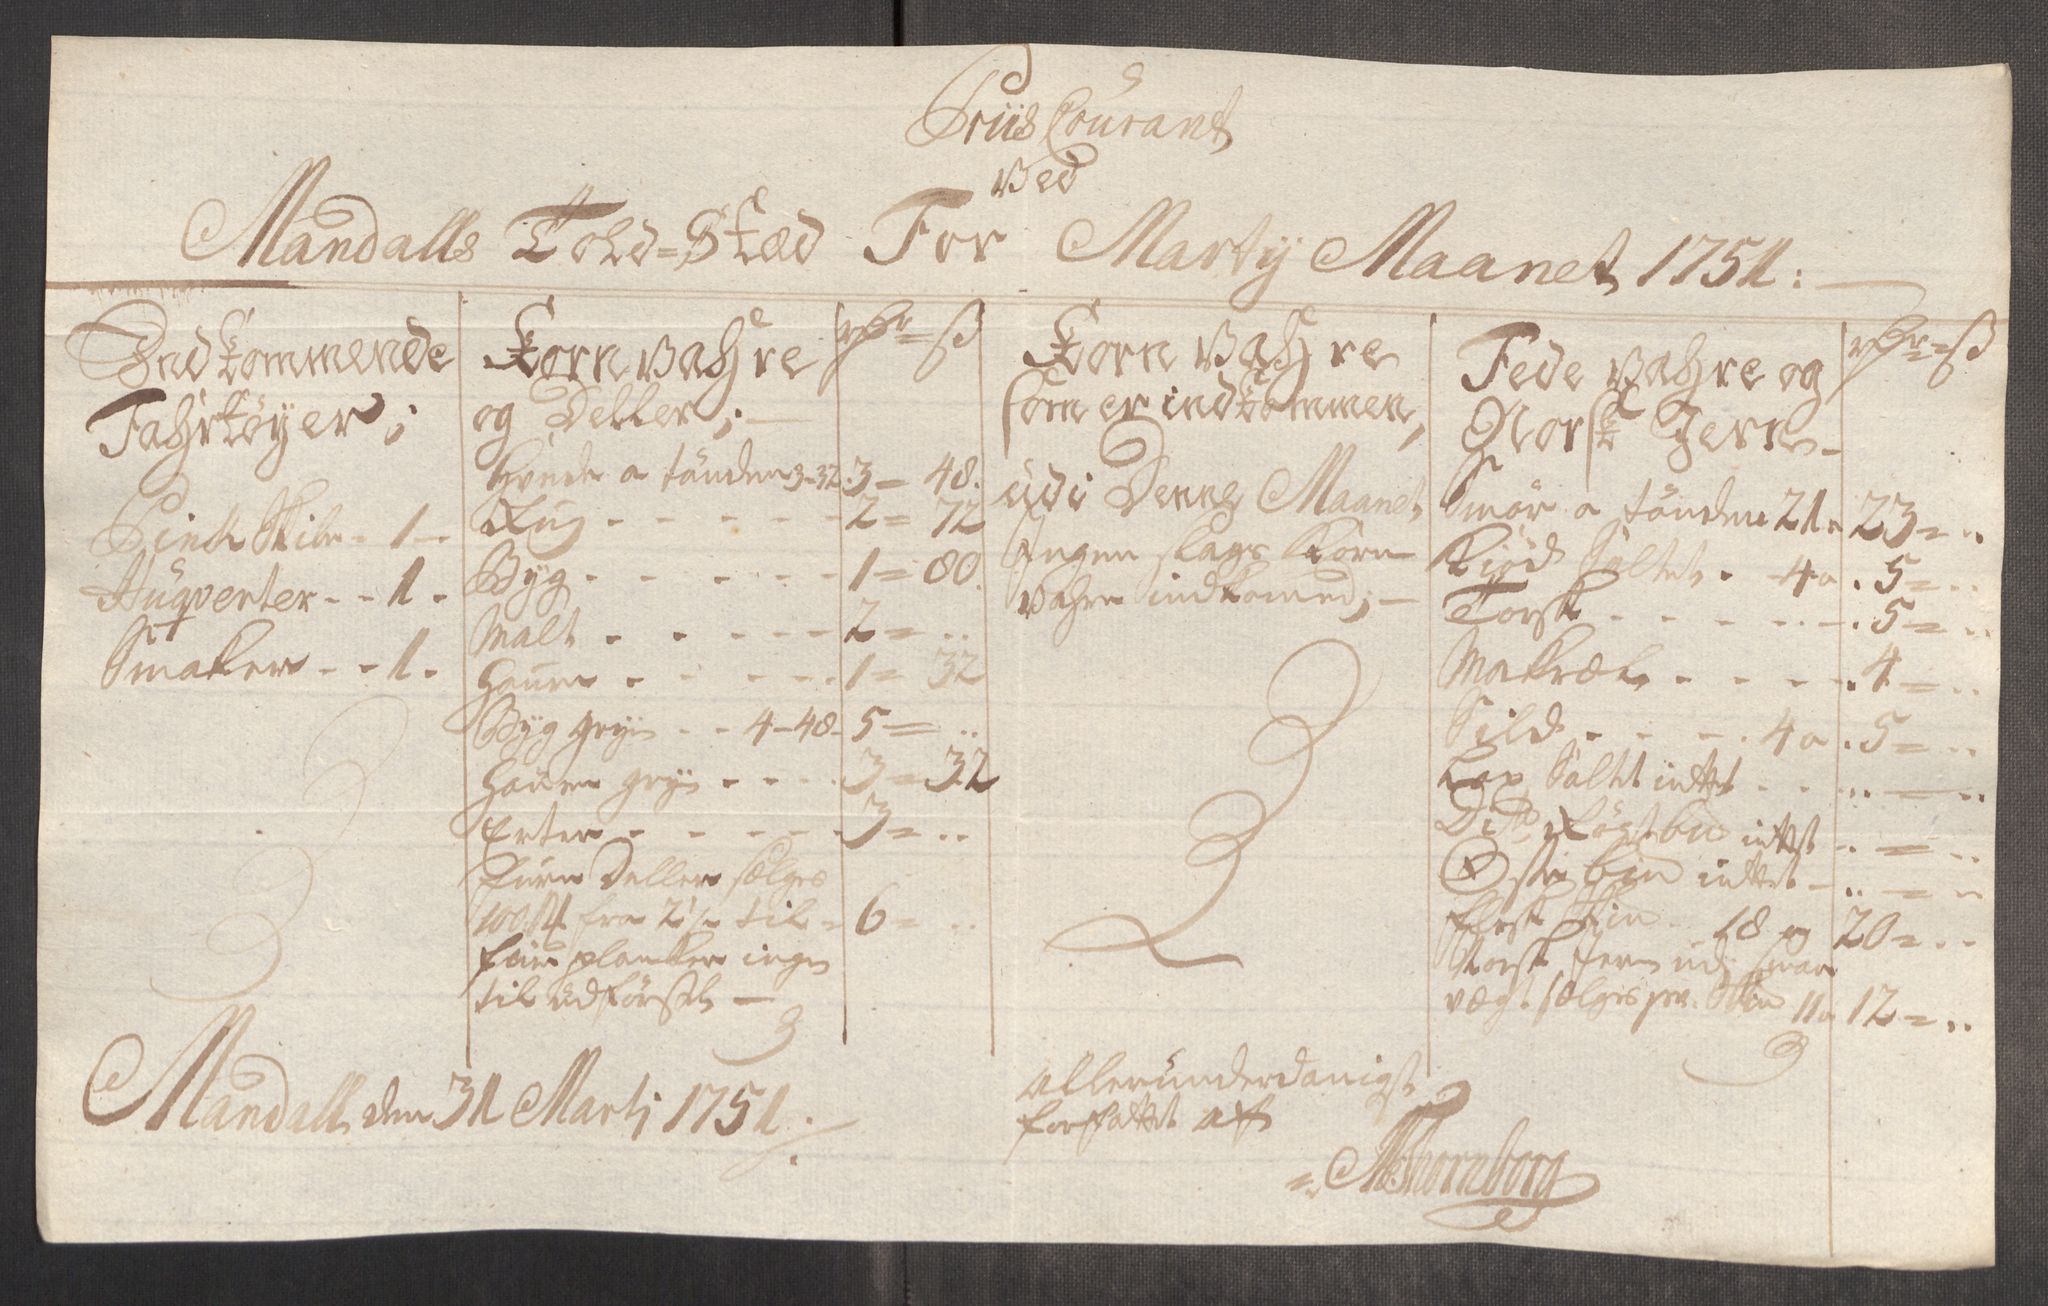 Priis Courant
ved
Mandalls Told=Stæd For Martij Maanet 1751:
Indkommende
Fahrtøyer;
Pink Skibe - 1 -
Huqverter - - 1 -
Smaker - - 1 -
Korn vahre
og Deller; -
rdr = ß
Hvede a tønden 3-32. 3 = 48.
Rug - - - - - - 2 = 72
Byg - - - - - - 1 = 80.
Malt - - - - - 2 = ..
Hauer - - - - - 1 = 32
Byg gryn - - 4-48. 5 = ..
Hauer gryn - - - - 3 = 32
Erter - - - - - - 3 = ..
Furu Deller sælges
100 st fra 2 1/2 til = 6 = ..
Furu plancker ingen
til udförsel -
Korn Vahre
som er indkommen,
udi Denne Maanet
Ingen slags Korn
vahre indkomed; -
Fede vahre og
Norsk Jern -
rdr = ß
Smør a tønden 21 a 23 = ..
Kiød Saltet - 4 a . 5 = ..
Torsk - - - - - . 5 = ..
Makrel - - - - . 4 = ..
Sild - - - - . 4 a . 5 = ..
Lax Saltet intet - - .. = ..
Dito Røget bd intet - .. = ..
intet - .. = ..
Flesk 18 a 20 = ..
Norsk Jern udj svær
vægt sælges pr. 11 a 12 = ..
Mandall den 31 Martj 1751.
allerunderdanigst
forfattet af
Thornborg